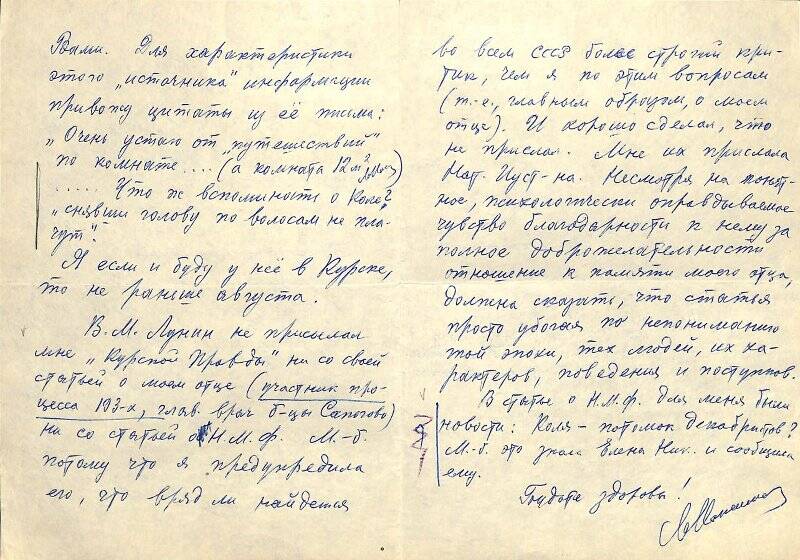 Вами. Для характеристики
этого „источника" информации
привожу цитаты из её письма:
„Очень устаю от „путешествий"
по комнате.... (а комната 12 м²
..... Что ж вспоминать о Коле?
„снявши голову по волосам не пла-
чут".
Я если и буду у неё в Курске,
то не раньше августа.
В.М. Лунин не присылал
мне „Курской Правды" ни со своей
статьей о моем отце (участник про-
цесса 193-х, глав. врач б-цы Сапогово)
ни со статьей о Н.М.Ф. М.-б.
потому что я предупредила
его, что вряд ли найдется
во всем СССР более строгий кри-
тик, чем я по этим вопросам
(т.-е., главным образом, о моем
отце). И хорошо сделал, что
не прислал. Мне их прислала
Нат. Иуст-на. Несмотря на понят-
ное, психологически оправдываемое
чувство благодарности к нему за
полное доброжелательности
отношение к памяти моего отца,
должна сказать, что статья
просто убогая по непониманию
той эпохи, тех людей, их ха-
рактеров, поведения и поступков.
В статье о Н.М.Ф. для меня были
новости: Коля - потомок декабристов?
М.-б. это знала Елена Ник. и сообщила
ему.
Будьте здоровы!